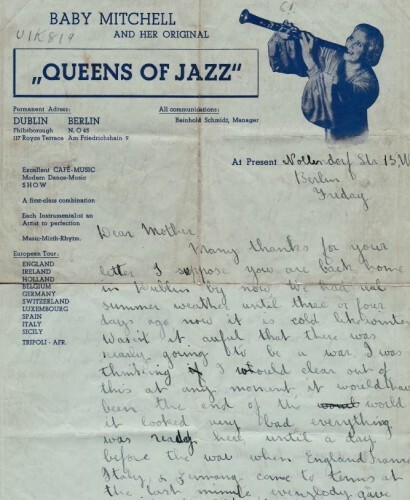 BABY MITCHELL
AND HER ORIGINAL
„QUEENS OF JAZZ“
Permanent Adress:
DUBLIN BERLIN
Phibsborough N. O 43
117 Royse Terrace Am Friedrichshain 9
All communications:
Reinhold Schmidt, Manager
Excellent CAFÉ-MUSIC
Modern Dance-Music
SHOW
A first-class combination
Each Instrumentalist an
Artist to perfection
Music-Mirth-Rhytm.
European Tour:
ENGLAND
IRELAND
HOLLAND
BELGIUM
GERMANY
SWITZERLAND
LUXEMBOURG
SPAIN
ITALY
SICILY
TRIPOLI - AFR.
At Present Nollendorf Str
Berlin
Friday
Dear Mother
Many thanks for your
letter I suppose you are back home
in Dublin by now We had real
summer weather until three or four
days ago now it is cold like winter
Wasn't it awful that there was
nearly going to be a war. I was
thinking I would clear out of
this at any moment it would have
been the end of the world
it looked very bad everything
was ready here until a day
before the war when England France
Italy & Germany came to terms at
the last minute everybody gave